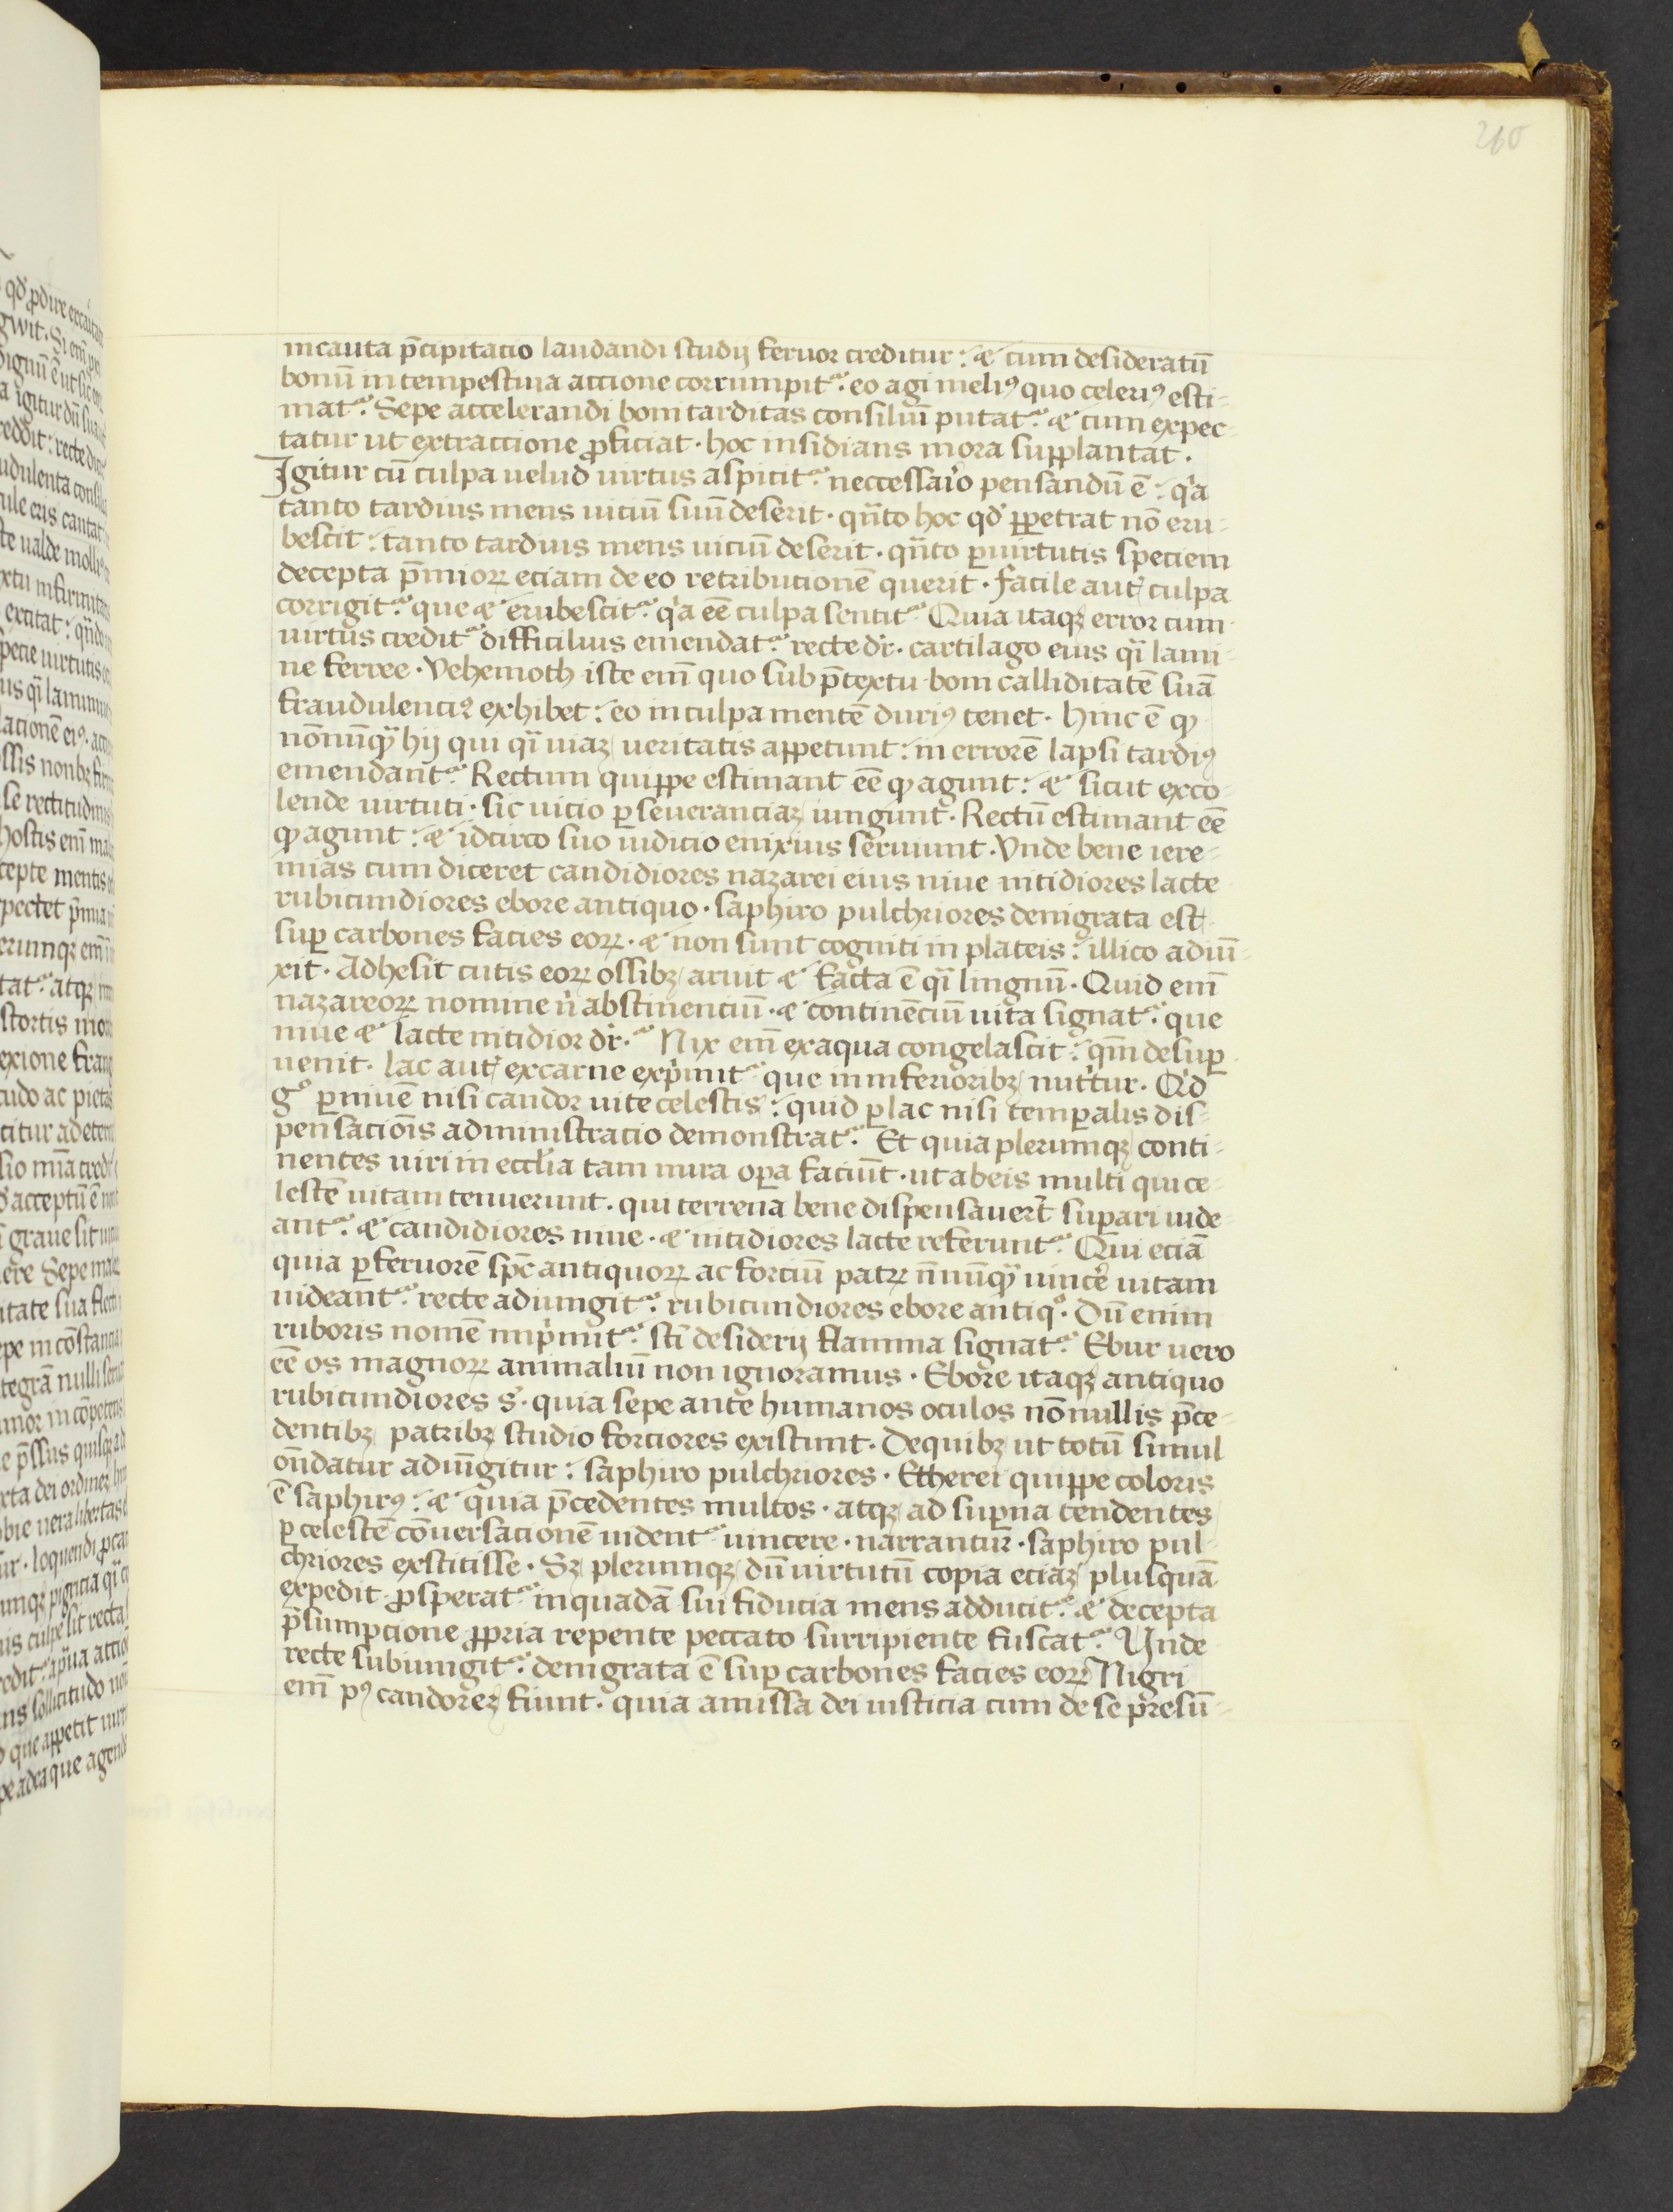 260
incauta p̄cipitacio laudandi studij feruor creditur : & cum desideratū
bonū in tempestiua accione corrumpit᷑ : eo agi meliꝰ quo celeriꝰ esti-
mat᷑ . Sepe accelerandi boni tarditas consiliū putat᷑ . & cum expec-
tatur ut extraccione ꝓficiat · hoc insidians mora supplantat ·
Igitur cū culpa uelud uirtus aspicit᷑ : neccessario pensandū ē : qͥa
tanto tardius mens uiciū suū deserit · qn̄to hoc qd̾ ꝑpetrat nō eru-
bescit : tanto tardius mens uiciū deserit · qn̄to ꝑ uirtutis speciem
decepta p̄mioꝝ eciam de eo retribucionē querit · facile aut̄ culpa
corrigit᷑ : que & erubescit᷑ : qͥa eē culpa sentit᷑ Quia itaqꝫ error cum
uirtus credit᷑ difficilius emendat᷑ : recte dr̄ · cartilago eius qͣi lami-
ne ferree · Vehemoth iste em̄ quo sub p̄textu boni calliditatē suā
fraudulenciꝰ exhibet : eo in culpa mentē duriꝰ tenet · Hinc ē ꝙ
nōnūqͣ hij qui qͣi uiaꝫ ueritatis appetunt : in errorē lapsi tardiꝰ
emendant᷑ . Rectum quippe estimant eē ꝙ agunt : & sicut exco-
lende uirtuti · sic uicio ꝑseueranciaꝫ iungunt · Rectū estimant eē
ꝙ agunt : & idcirco suo iudicio enixius seruiunt · Vnde bene iere-
mias cum diceret candidiores nazarei eius niue nitidiores lacte
rubicundiores ebore antiquo · saphiro pulchriores denigrata est
suꝑ carbones facies eoꝝ · & non sunt cogniti in plateis : illico adiū-
xit · Adhesit cutis eoꝝ ossibꝫ aruit & facta ē qͣi lingnū · Quid em̄
nazareoꝝ nomine nͥ abstinenciū · & continēciū uita signat᷑ : que
niue & lacte nitidior dr̄ · Nix em̄ ex aqua congelascit : qm̄ desuꝑ
uenit · lac aut̄ ex carne exp̍mit᷑ que in inferioribꝫ nutͥtur · Qͥd
gͦ ꝑ niuē nisi candor uite celestis : quid ꝑ lac nisi temꝑalis dis-
pensacio̅is administracio demonstrat᷑ . Et quia plerumqꝫ conti-
nentes uiri in eccl̄ia tam mira oꝑa faciūt · ut ab eis multi qui ce-
lestē uitam tenuerunt · qui terrena bene dispensauer̄t suꝑari uide-
ant᷑ : & candidiores niue · & nitidiores lacte referunt᷑ . Qui eciā
quia ꝑ feruorē sp̄c antiquoꝝ ac forciū patꝝ n̄nūqͣ uincē̍ uitam
uideant᷑ : recte adiungit᷑ : rubicundiores ebore antiqͦ · Dū enim
ruboris nomē imp̍mit᷑ : sc̄i desiderij flamma signat᷑ . Ebur uero
eē os magnoꝝ animaliū non ignoramus · Ebore itaqꝫ antiquo
rubicundiores s̄ · quia sepe ante humanos oculos nōnullis p̄ce-
dentibꝫ patribꝫ studio forciores existunt · De quibꝫ ut totū simul
on̄datur adiūgitur : saphiro pulchriores · Etherei quippe coloris
ē saphirꝰ : & quia p̄cedentes multos · atqꝫ ad suꝑna tendentes
ꝑ celestē cōuersacionē uident᷑ uincere · narrantur · saphiro pul-
chriores exstitisse · Sꝫ plerumqꝫ dū uirtutū copia eciaꝫ plusquā
expedit ꝓsperat᷑ : in quadā sui fiducia mens adducit᷑ : & decepta
p̄sumpcione ꝓpria repente peccato surripiente fuscat᷑ . Unde
recte subiungit᷑ : denigrata ē suꝑ carbones facies eoꝝ Nigri
em̄ pꝰ candoreꝫ fiunt · quia amissa dei iusticia cum de se p̄resū-